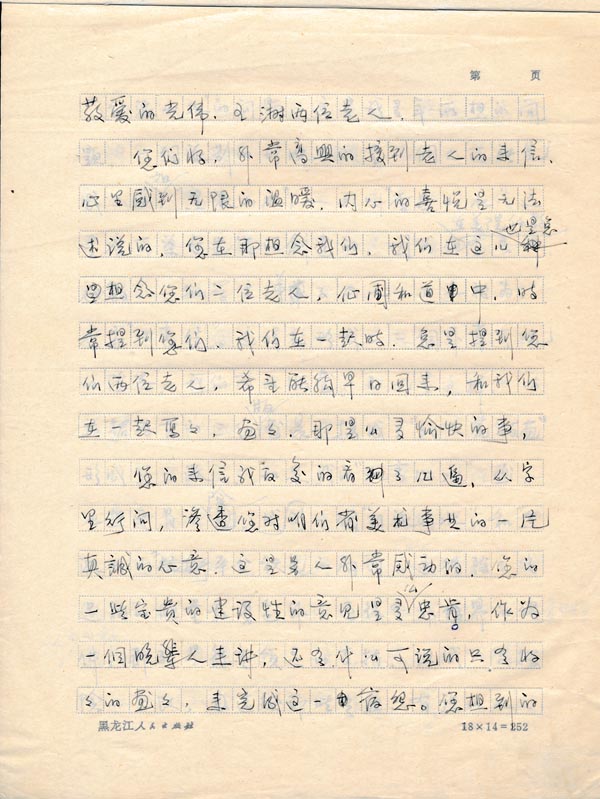 第 页
敬爱的光伟、王澍两位老人、
您们好,非常高興的接到老人的来信、
心里感到无限的温暖,内心的喜悦是无法
述说的,您在那想念我们,我们在这儿也是总
是想念您们二位老人,
常提到您们、我们在一起时、总是提到您
们两位老人,希望能夠早日回来,和我们
在一起写々,画々,那是么多愉快的事,
您的来信我反复的看了几遍,从字
里行间,渗透您对咱们省美术事业的一片
真誠的心意、这是另人非常感动的、您的
一些宝贵的建设性的意见是多么忠肯。作为
一個晚輩人来讲,还有什么可说的只有好
々的画々,来完成这一 。您想到的
黑龙江人民出版社
18×14=252